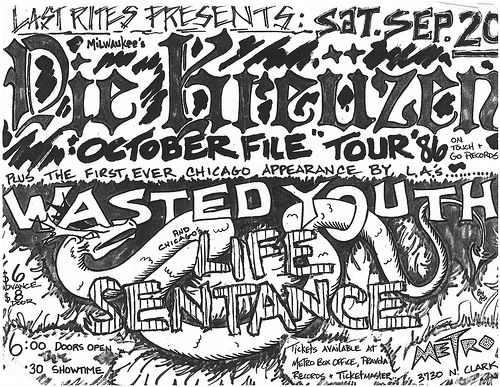 LAST RITES PRESENTS: SAT. SEP. 20
MILWAUKEE'S
Die Kreüzen
"OCTOBER FILE" TOUR '86
ON TOUCH + GO RECORDS
PLUS THE FIRST EVER CHICAGO APPEARANCE BY L.A.'s
WASTED YOUTH
AND CHICAGO'S
LIFE
SENTANCE
$6 ADVANCE
$8 DOOR
6:00 DOORS OPEN
:30 SHOWTIME
TICKETS AVAILABLE AT
METRO BOX OFFICE,
RECORDS + TICKETMASTER
METRO
3730 N. CLARK